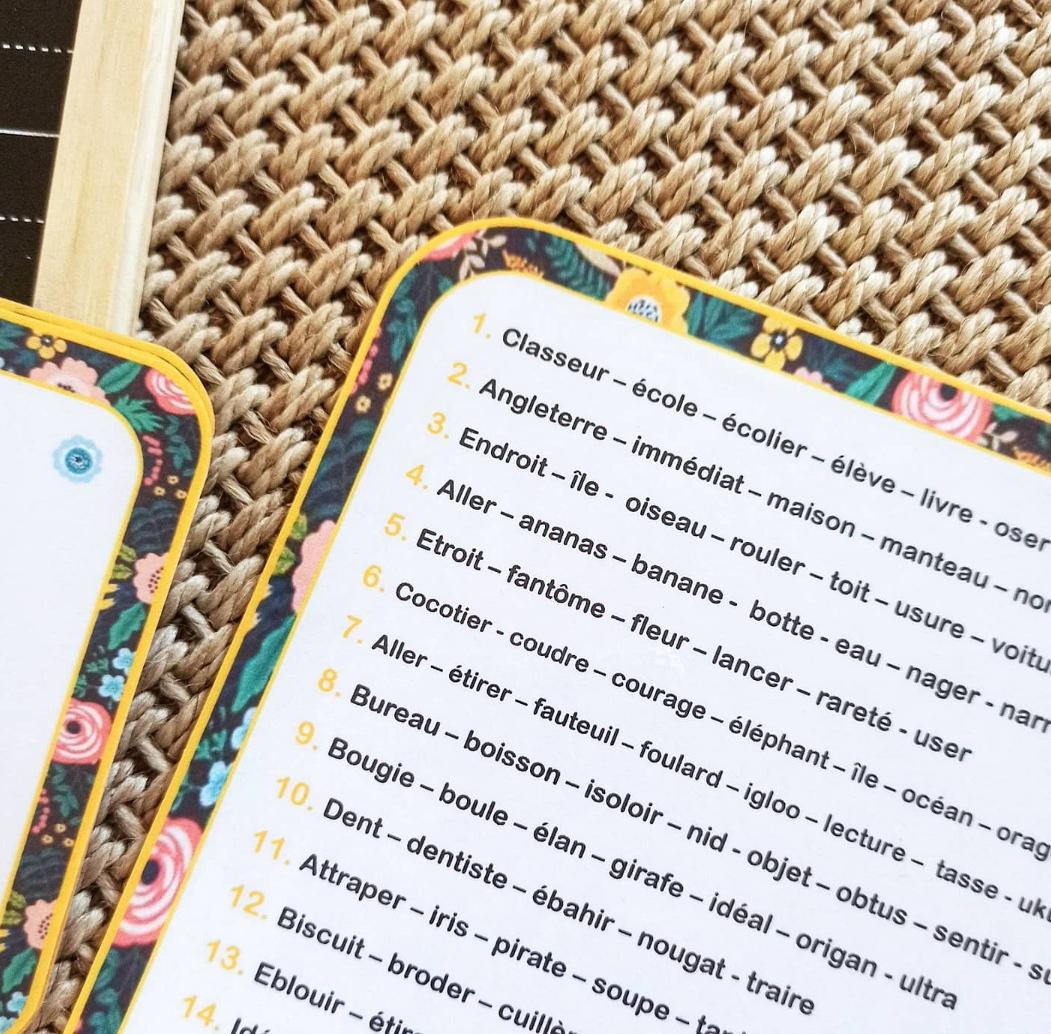 1. Classeur – école – écolier – élève – livre - oser
2. Angleterre – immédiat – maison – manteau –
3. Endroit – île - oiseau – rouler – toit – usure – voitu
4. Aller – ananas – banane - botte - eau – nager - narr
5. Etroit – fantôme – fleur – lancer – rareté - user
6. Cocotier - coudre – courage – éléphant – île – océan – orag
7. Aller – étirer – fauteuil – foulard – igloo – lecture – tasse - uku
8. Bureau – boisson – isoloir – nid - objet – obtus – sentir - su
9. Bougie – boule – élan – girafe – idéal – origan - ultra
10. Dent – dentiste – ébahir – nougat - traire
11. Attraper – iris – pirate – soupe –
12. Biscuit – broder – cuillè
13. Eblouir – étir
14.